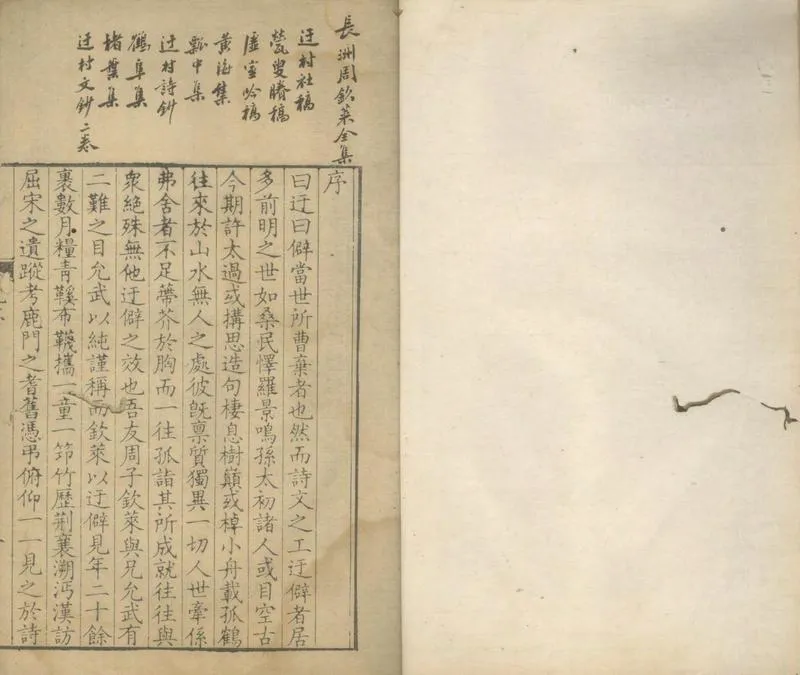 長洲周欽萊全集
迂村社稿
甃叟賸稿
虛室吟稿
黃海集
瓢中集
迂村詩鈔
鶴阜集
楮葉集
迂村文鈔二卷
序
曰迂曰僻當世所曹棄者也然而詩文之工迂僻者居
多前明之世如桑民懌羅景鳴孫太初諸人或目空古
今期許太過或搆思造句棲息樹巔或棹小舟載孤鶴
往來於山水無人之處彼旣稟質獨異一切人世牽係
弗舍者不足蔕芥於胸而一往孤詣其所成就往往與
衆絕殊無他迂僻之效也吾友周子欽萊與兄允武有
二難之目允武以純謹稱而欽萊以迂僻見年二十餘
裹數月糧青鞵布韈攜一童一筇竹歷荆襄溯沔漢訪
屈宋之遺蹤考鹿門之耆舊憑弔俯仰一一見之於詩